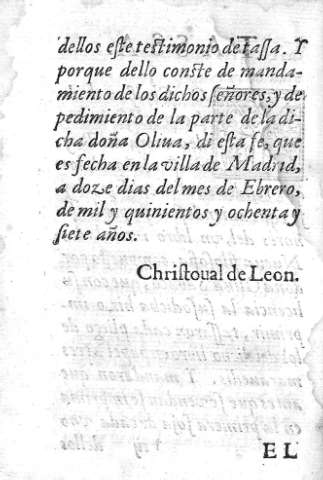 dellos eſte teſtimonio de taſſa. Y
porque dello conſte de manda-
miento de los dichos ſeñores, y de
pedimiento de la parte de la di-
cha doña Oliua, di eſta fe, que
es fecha en la villa de Madrid,
a doze dias del mes de Ebrero,
de mil y quinientos y ochenta y
ſiete años.
Chriſtoual de Leon.
EL